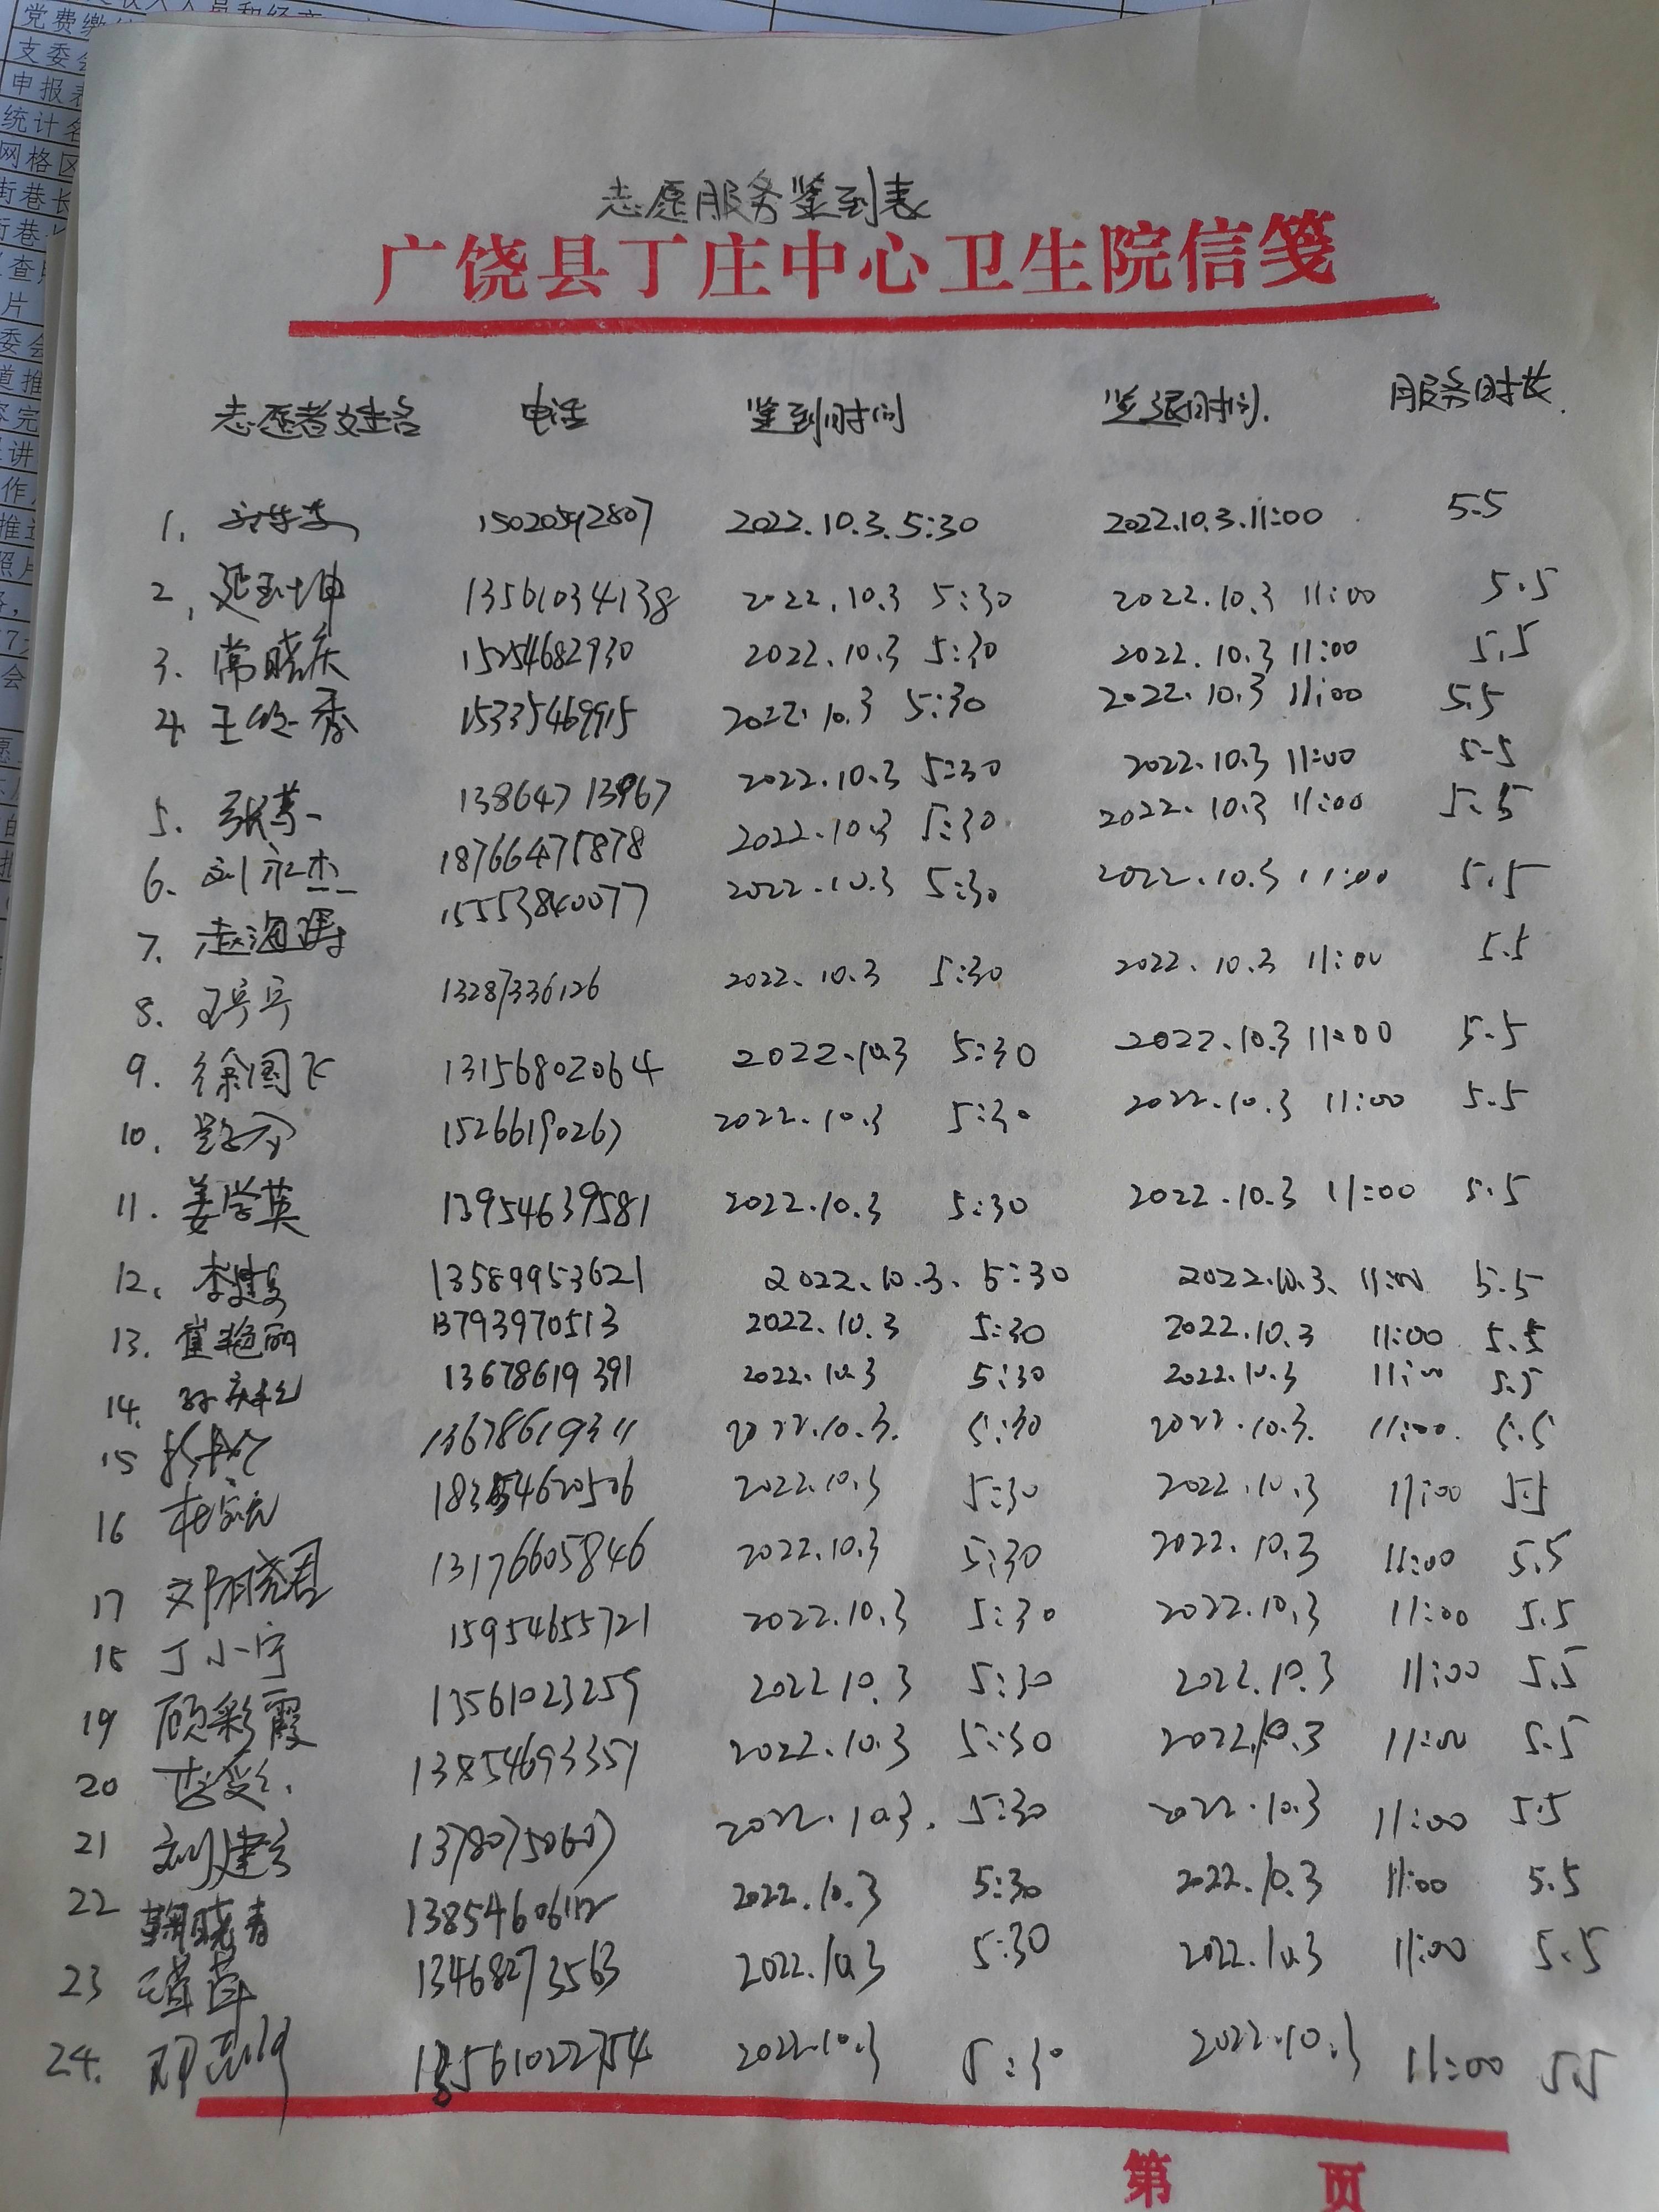 党费缴
支委会
申报表
统计名
网格区
街巷长
志愿服务鉴到表
广饶县丁庄中心卫生院信笺
志愿者姓名 电话 鉴到时间 鉴退时间. 服务时长.
1. 15020592807 2022.10.3. 5:30 2022.10.3. 11:00 5.5
2. 延玉坤 13561034138 2022.10.3 5:30 2022.10.3 11:00 5.5
3. 常晓庆 15254682930 2022.10.3 5:30 2022.10.3 11:00 5.5
4. 15335469915 2022.10.3 5:30 2022.10.3 11:00 5.5
5. 13864713967 2022.10.3 5:30 2022.10.3 11:00 5.5
6. 刘永杰 18766475878 2022.10.3 5:30 2022.10.3 11:00 5.5
7. 15553840077 2022.10.3 5:30 2022.10.3 11:00 5.5
8. 13287336126 2022.10.3 5:30 2022.10.3 11:00 5.5
9. 徐国飞 13156802064 2022.10.3 5:30 2022.10.3 11:00 5.5
10. 15266190267 2022.10.3 5:30 2022.10.3 11:00 5.5
11. 姜学英 13954639581 2022.10.3 5:30 2022.10.3 11:00 5.5
12. 13589953621 2022.10.3. 5:30 2022.10.3. 11:00 5.5
13. 崔艳丽 13793970513 2022.10.3 5:30 2022.10.3 11:00 5.5
14. 13678619391 2022.10.3 5:30 2022.10.3 11:00 5.5
15 13678619311 2022.10.3. 5:30 2022.10.3. 11:00. 5.5
16 2022.10.3 5:30 2022.10.3 11:00 5.5
17 13176605846 2022.10.3 5:30 2022.10.3 11:00 5.5
18 丁小宁 15954655721 2022.10.3 5:30 2022.10.3 11:00 5.5
19 顾彩霞 13561023259 2022.10.3 5:30 2022.10.3 11:00 5.5
20 13854693357 2022.10.3 5:30 2022.10.3 11:00 5.5
21 13780750607 2022.10.3. 5:30 2022.10.3 11:00 5.5
22 鞠晓青 13854606112 2022.10.3 5:30 2022.10.3 11:00 5.5
23 13468273563 2022.10.3 5:30 2022.10.3 11:00 5.5
24. 13561022754 2022.10.3 5:30 2022.10.3 11:00 5.5
第 页